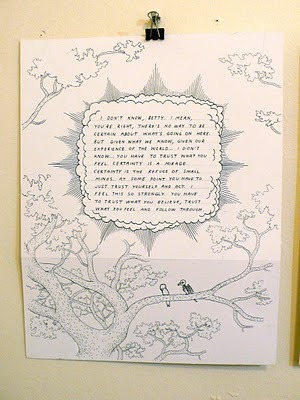 I DON'T KNOW, BETTY. I MEAN,
YOU'RE RIGHT, THERE'S NO WAY TO BE
CERTAIN ABOUT WHAT'S GOING ON HERE.
BUT GIVEN WHAT WE KNOW, GIVEN OUR
EXPERIENCE OF THE WORLD... I DON'T
KNOW... YOU HAVE TO TRUST WHAT YOU
FEEL. CERTAINTY IS A MIRAGE.
CERTAINTY IS THE REFUGE OF SMALL
MINDS. AT SOME POINT YOU HAVE TO
JUST TRUST YOURSELF AND ACT. I
FEEL THIS SO STRONGLY. YOU HAVE
TO TRUST WHAT YOU BELIEVE, TRUST
WHAT YOU FEEL AND FOLLOW THROUGH.